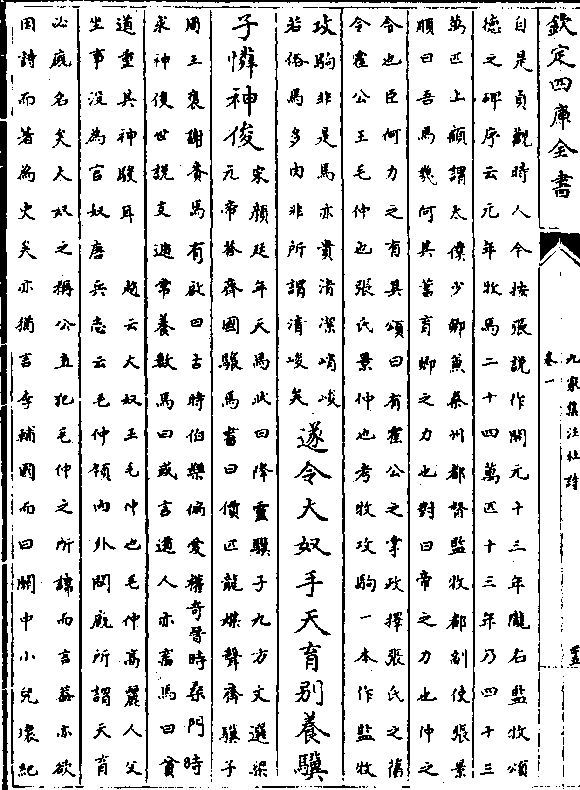 欽定四庫全書
九家集注杜詩
卷一
自是貞觀時人今按張說作開元十三年隴右監牧頌
德之碑序云元年牧馬二十四萬匹十三年乃四十三
萬匹上顧謂太僕少卿兼秦州都督監牧都副使張景
順曰吾馬幾何其蕃育卿之力也對曰帝之力也仲之
令也臣何力之有其頌曰有霍公之掌政擇張氏之舊
令霍公王毛仲也張氏景仲也考牧攻駒一本作監牧
攻駒非是馬亦貴清潔峭峻
若俗馬多肉非所謂清峻矣
遂令大奴手天育别養驥
子憐神俊
宋顔延年天馬狀曰降靈驥子九方文選梁
元帝答齊國驥馬書曰價匹龍媒聲齊驥子
周王襃謝賚馬有啟曰古時伯樂偏愛權奇晉時桑門時
求神俊世說支遁常養數馬曰或言道人亦畜馬曰貧
道重其神駿耳
趙云大奴王毛仲也毛仲高麗人父
坐事沒為官奴唐兵志云毛仲領内外閑廐所謂天育
必廐名矣大奴之稱公直犯毛仲之所諱而言蓋亦欲
因詩而著為史矣亦猶言李輔國而曰關中小兒壞紀